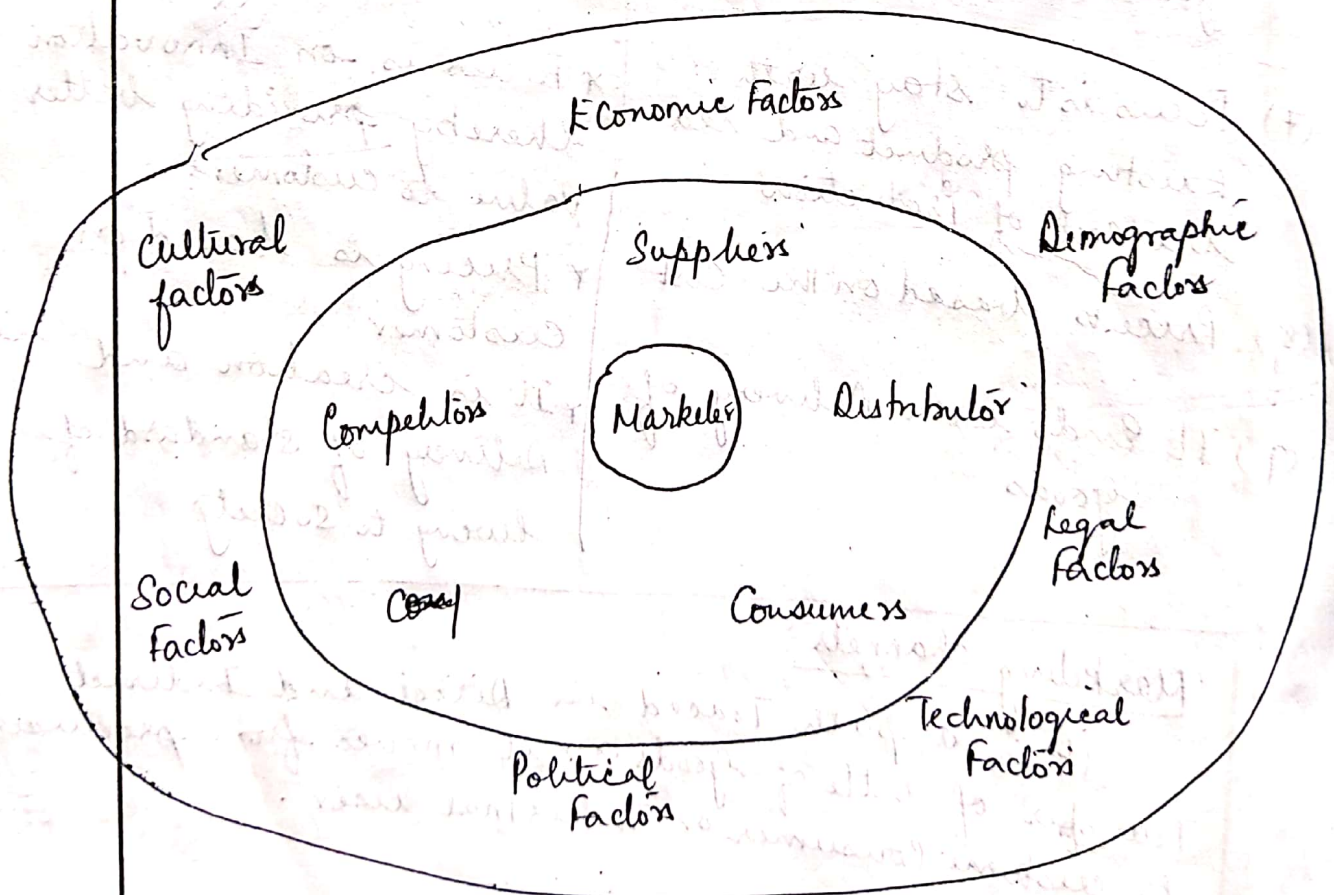 Economic Factors
Cultural
factors
Suppliers
Demographic
Factors
Competitors
Marketer
Distributor
Legal
Factors
Social
Factors
Consumers
Technological
Factors
Political
Factors